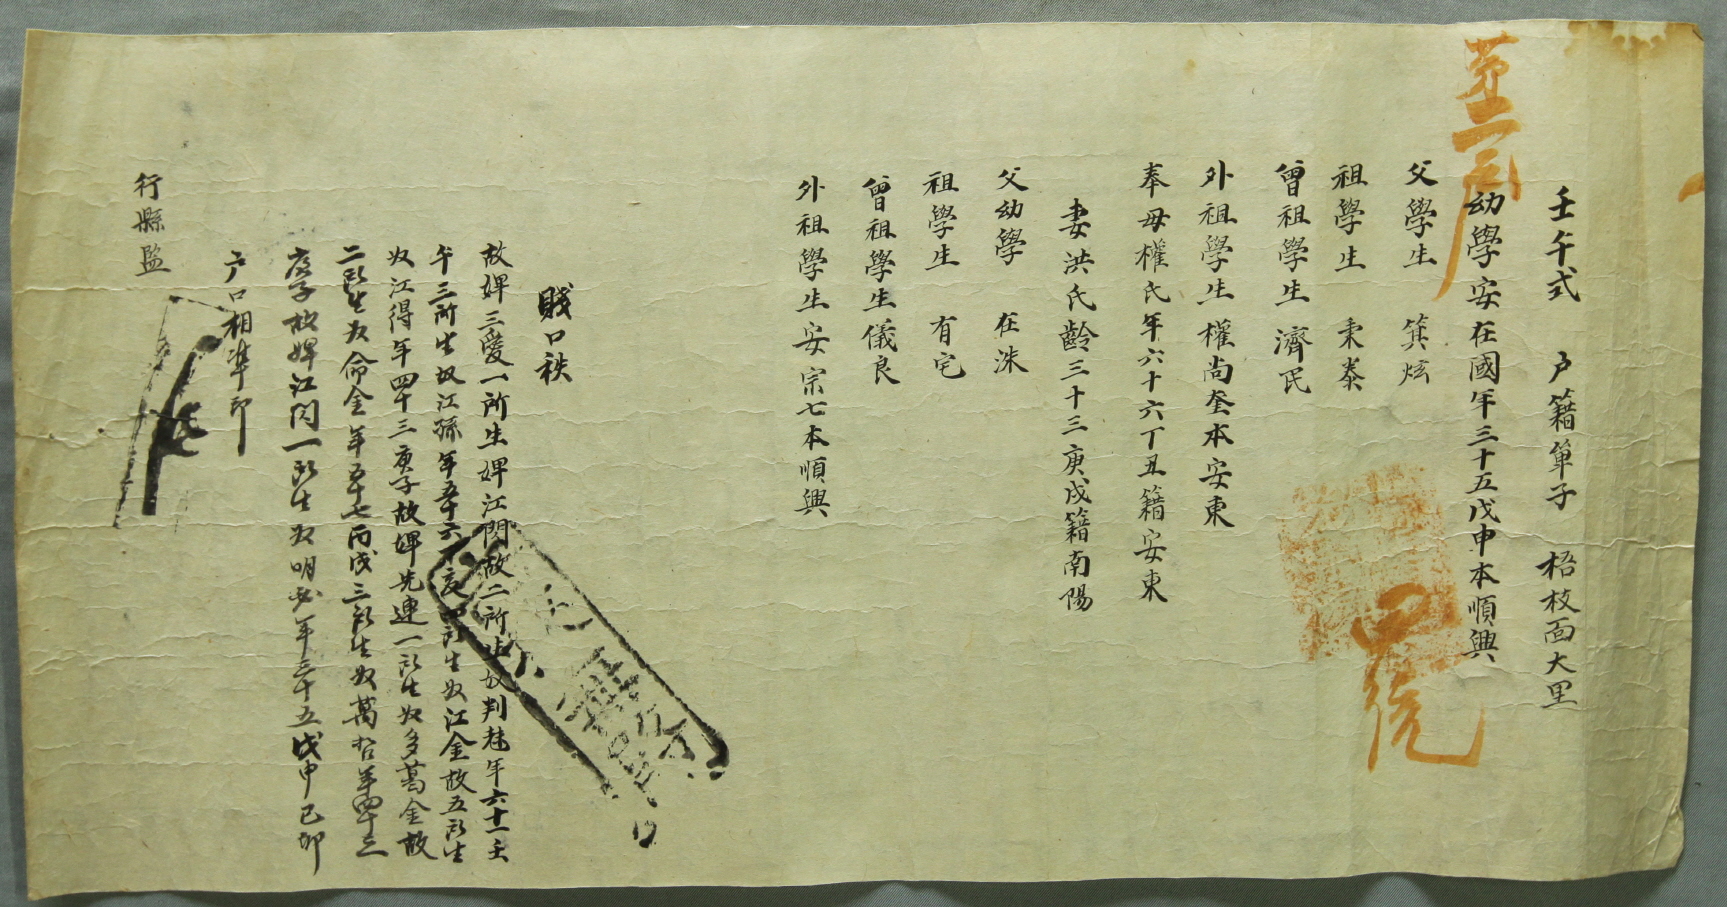 壬午式 戶籍單子 梧枝面大里
第二 統
幼學安在國年三十五戊申本順興
父學生 箕炫
祖學生 秉泰
曾祖學生 濟民
外祖學生權尚奎本安東
奉母權氏年六十六丁丑籍安東
妻洪氏齡三十三庚戌籍南陽
父幼學 在洙
祖學生 有宅
曾祖學生儀良
外祖學生安宗七本順興
賤口秩
故婢三愛一所生婢江閃故二所生奴判 年六十一壬
午三所生奴江孫年五十六丁亥四所生奴江金故五所生
奴江得年四十三庚子故婢先連一所生奴多葛金故
二所生奴命金年五十七丙戌三所生奴萬 年四十三
庚子故婢江閃一所生奴明 年三十五戊申己卯
戶口相準印
行縣監